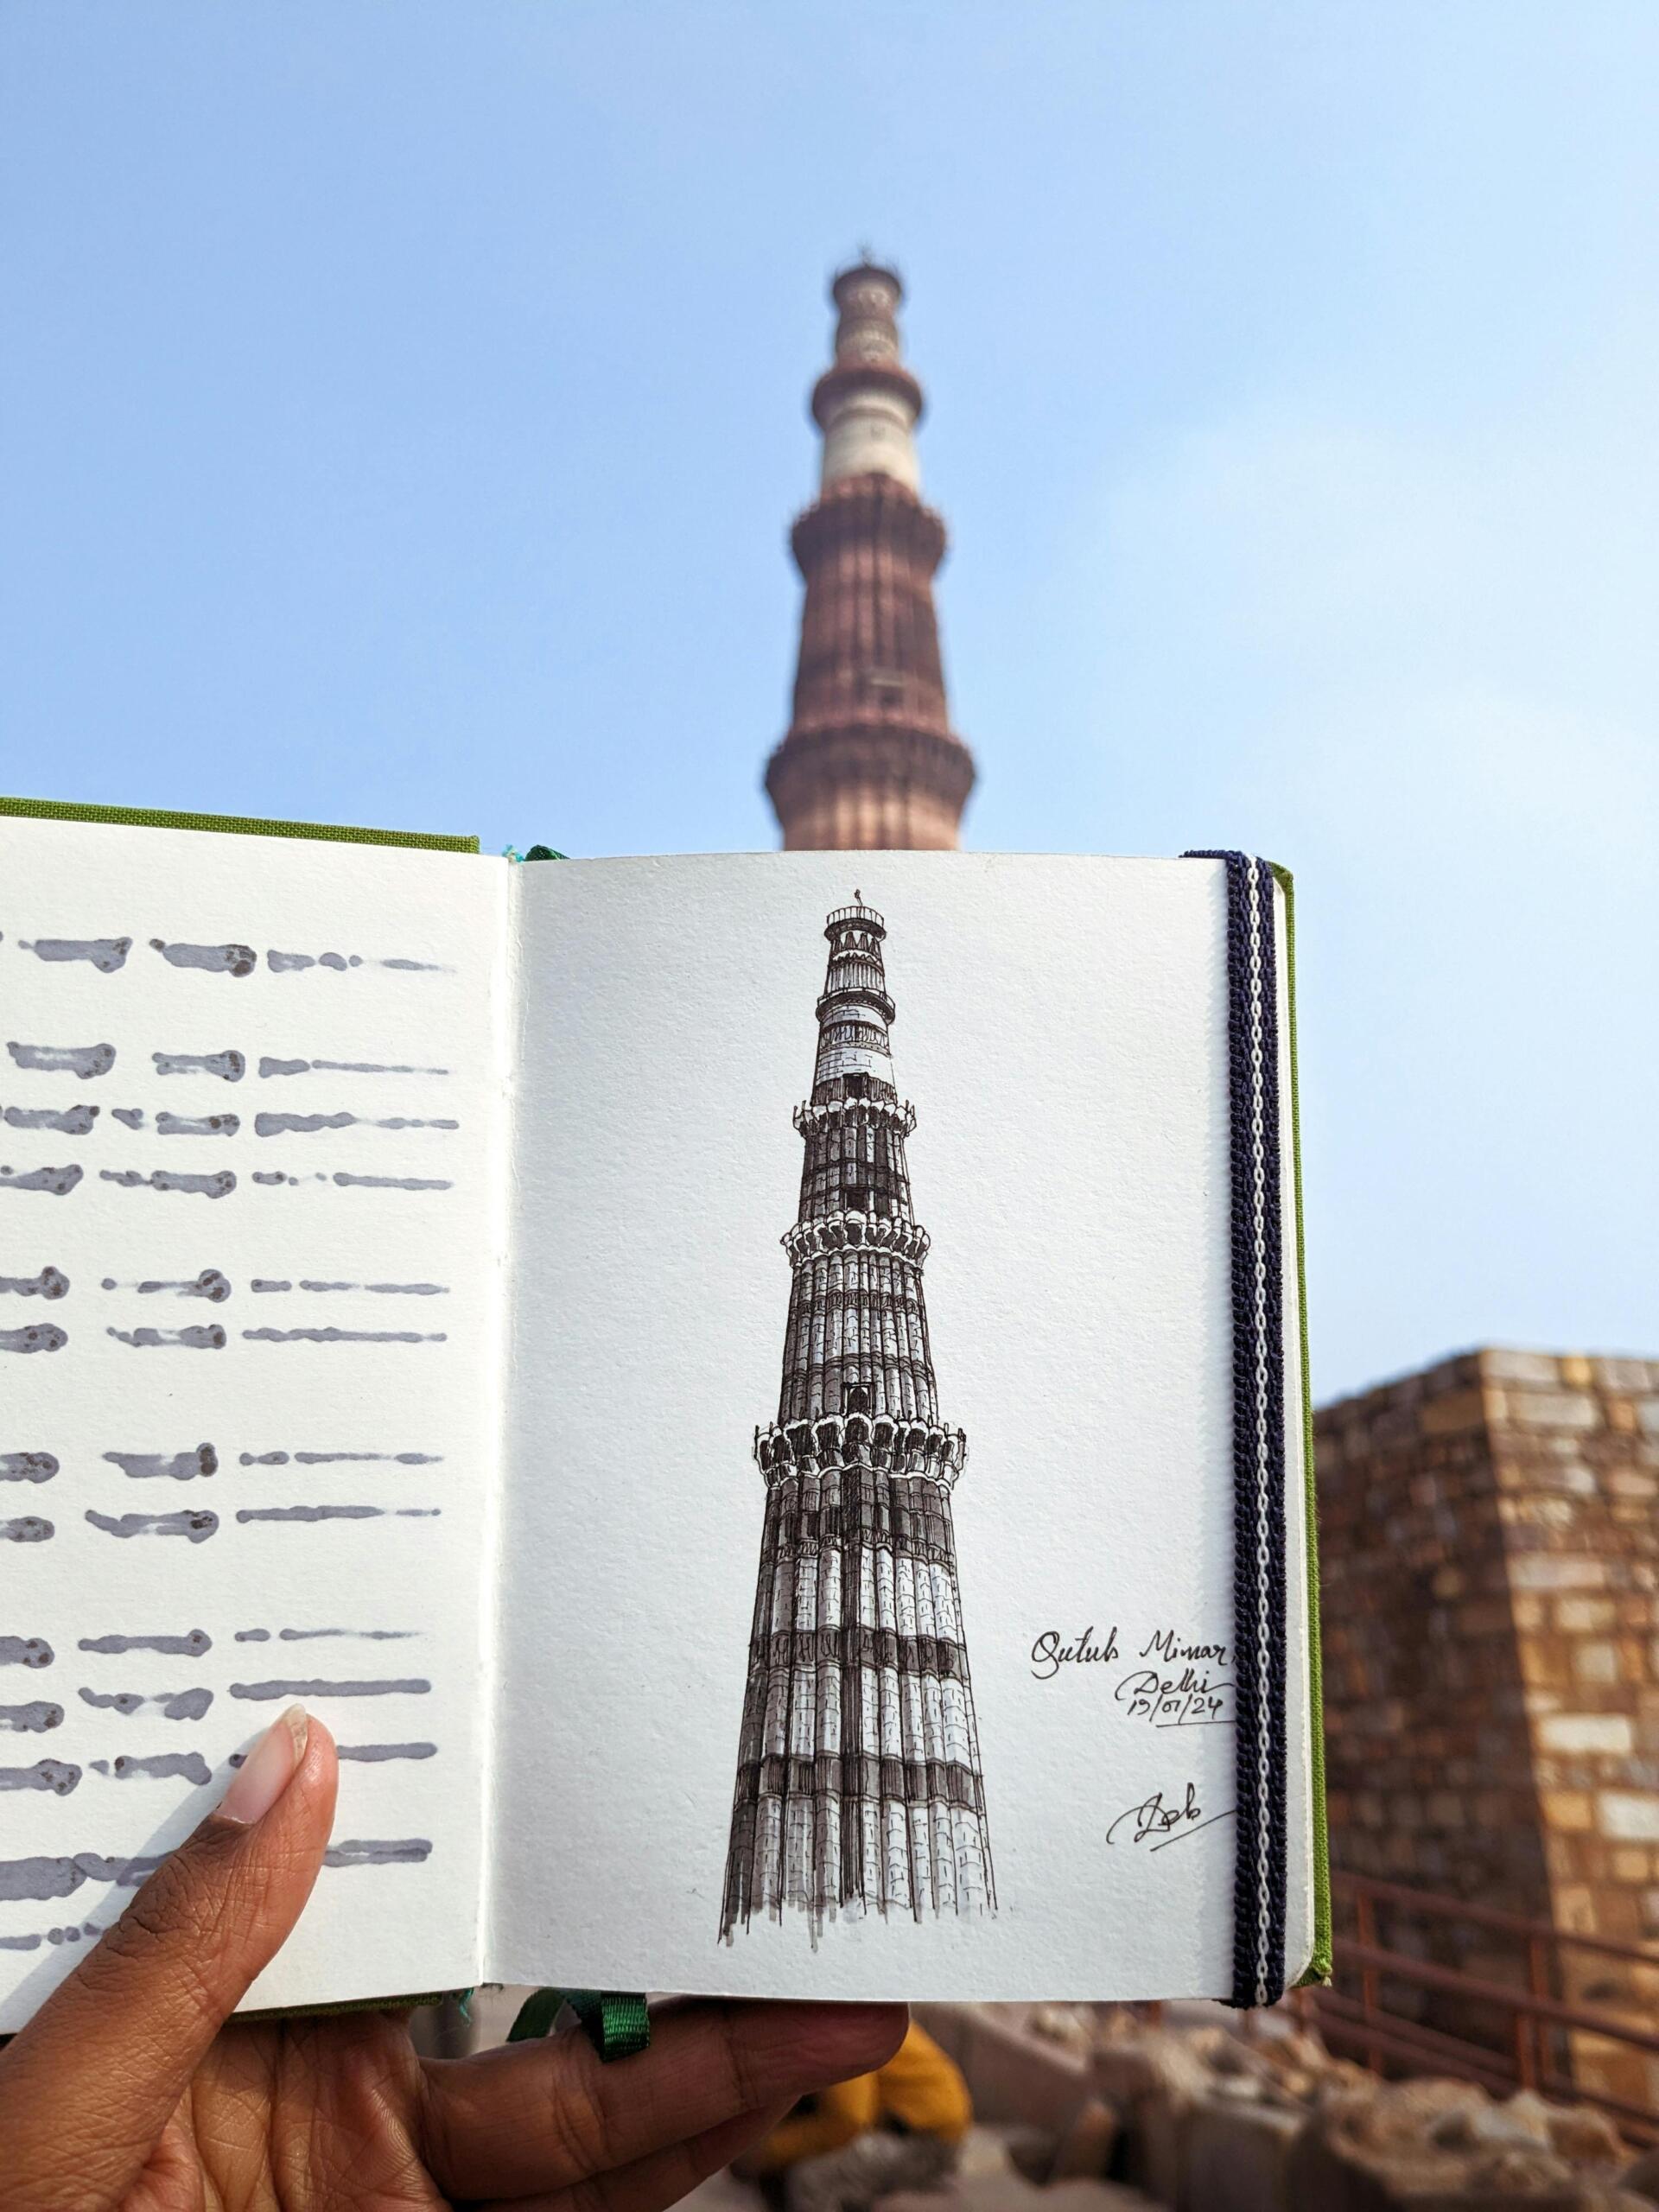 Qutub Minar,
Delhi
19/01/24
Deb